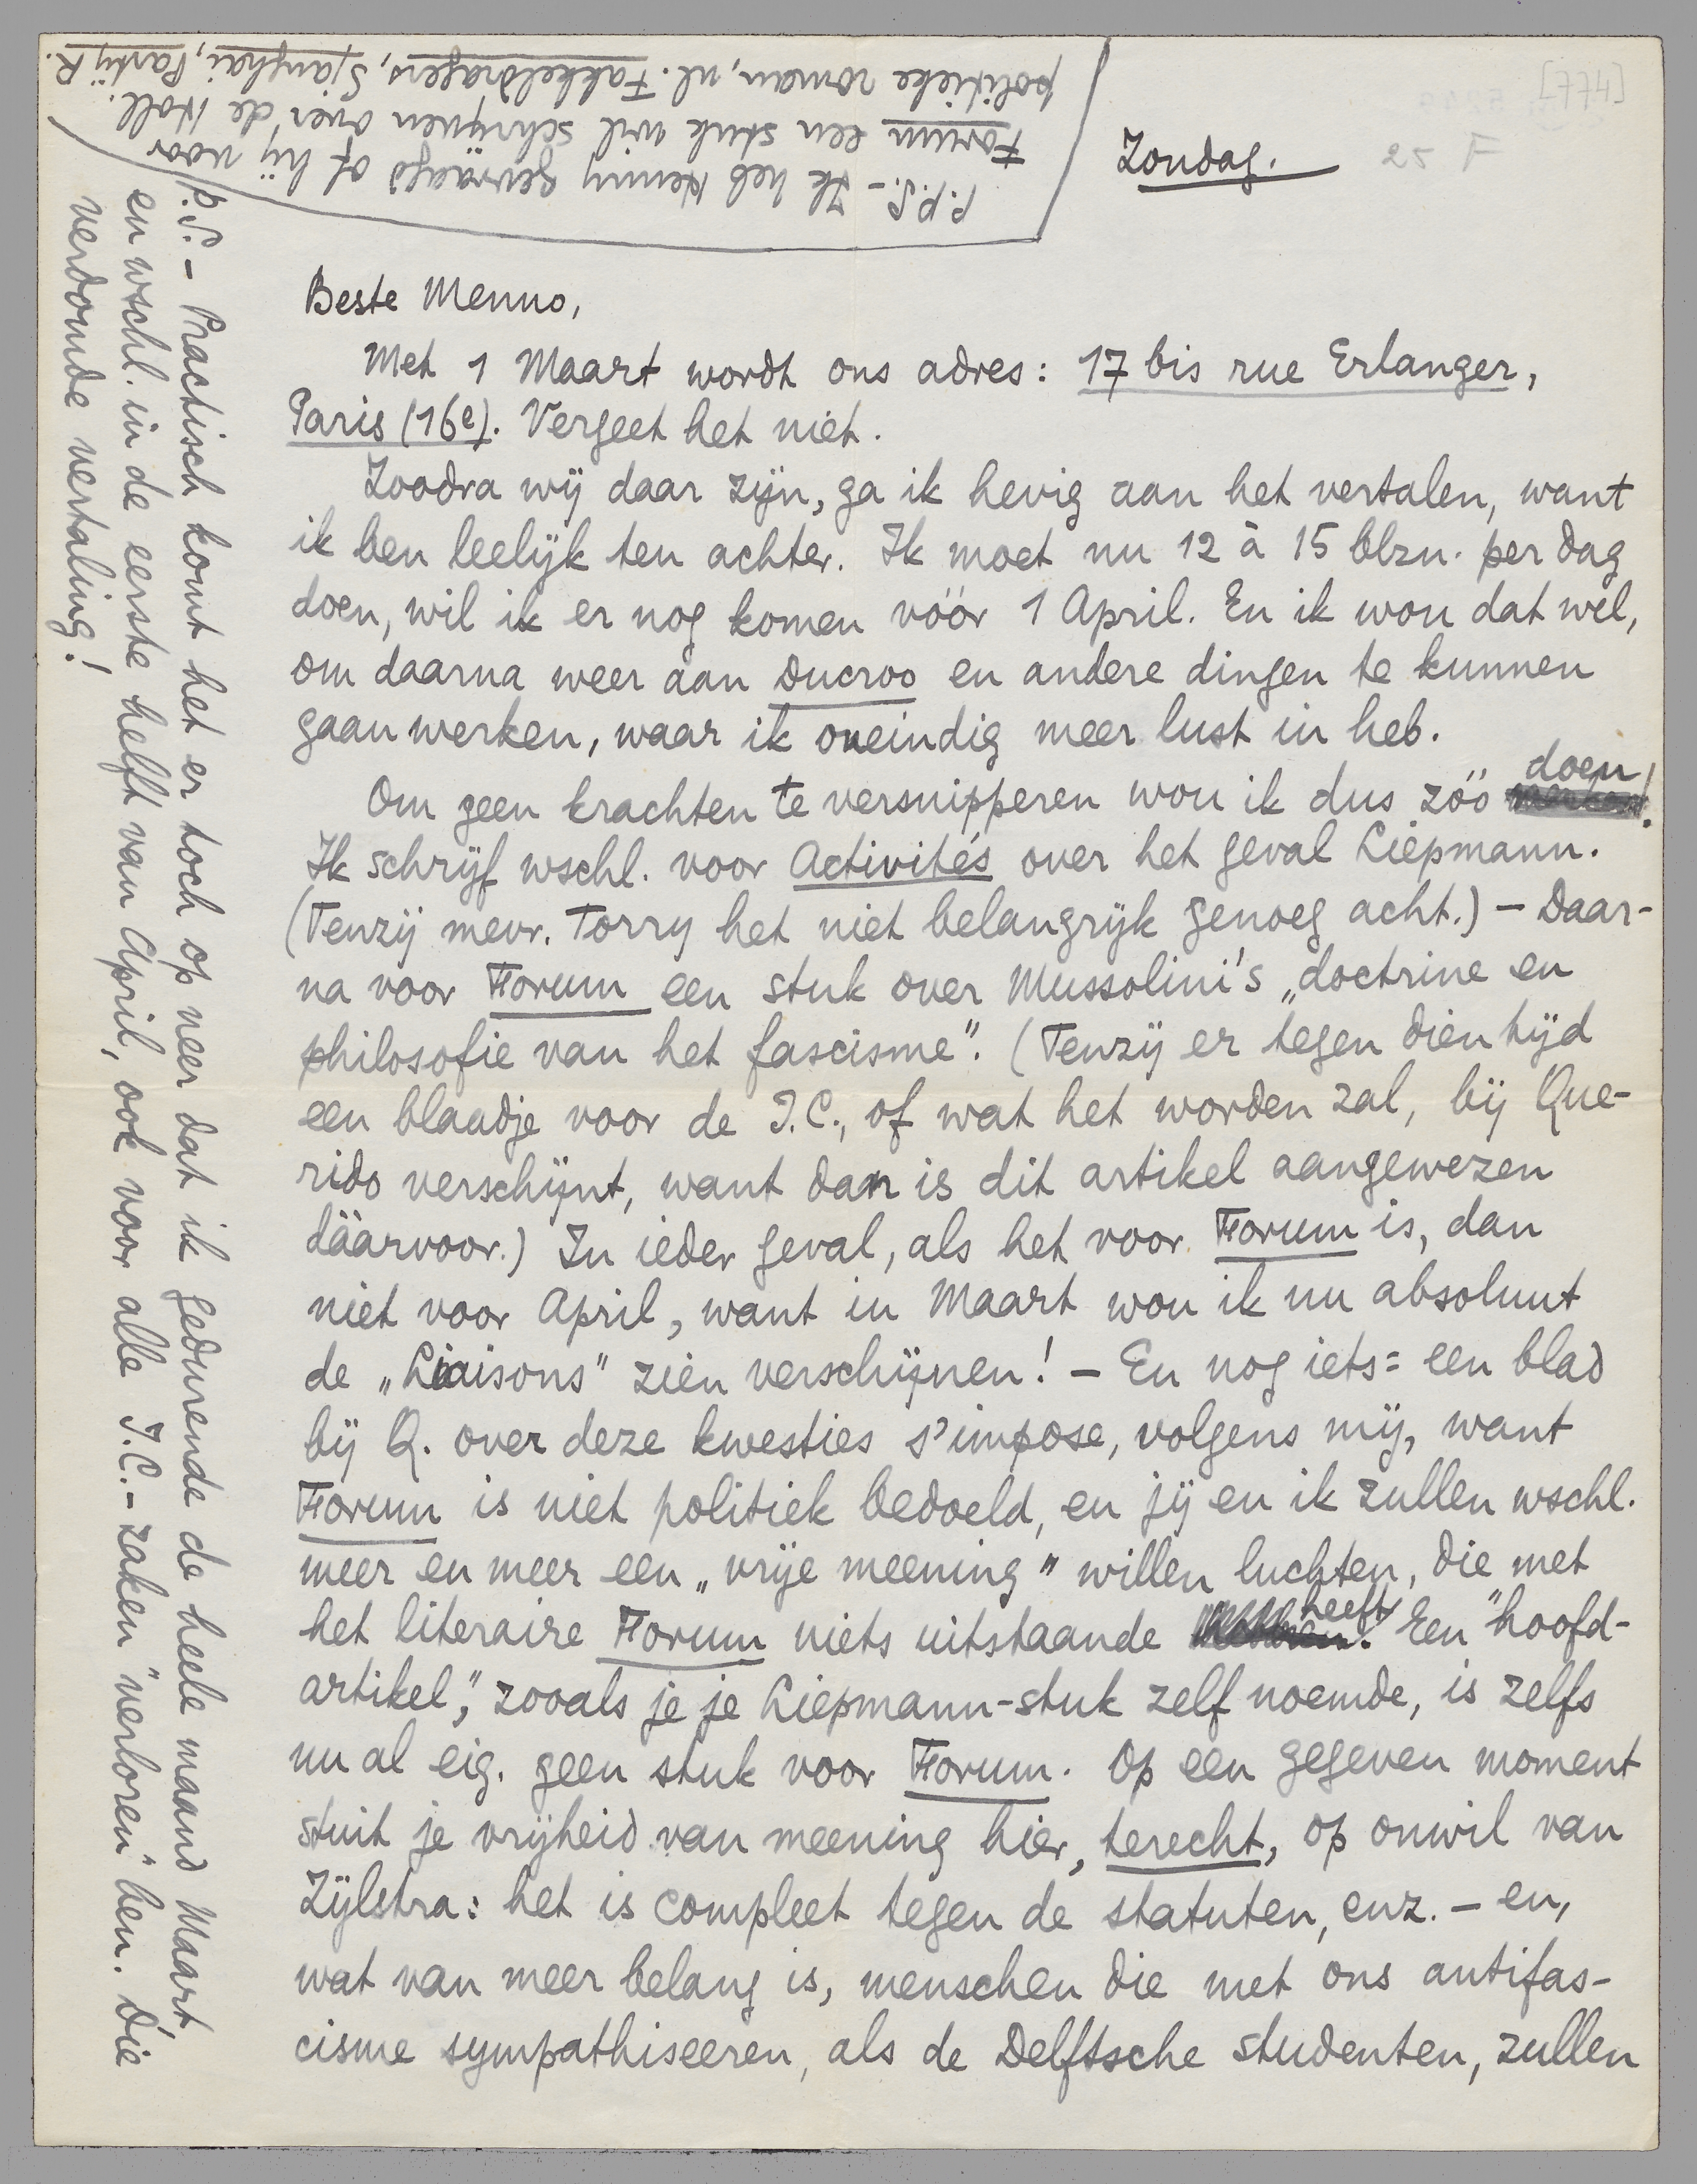 [774]
Zondag.
25 F
Beste Menno,
Met 1 Maart wordt ons adres: 17 bis rue Erlanger,
Paris (16e). Vergeet het niet.
Zoodra wij daar zijn, ga ik hevig aan het vertalen, want
ik ben leelijk ten achter. Ik moet nu 12 à 15 blzn. per dag
doen, wil ik er nog komen vóór 1 April. En ik wou dat wel,
om daarna weer aan Ducroo en andere dingen te kunnen
gaan werken, waar ik oneindig meer lust in heb.
Om geen krachten te versnipperen wou ik dus zóó doen!
Ik schrijf wschl. voor Activités over het geval Liepmann.
(Tenzij mevr. Torry het niet belangrijk genoeg acht.) – Daar-
na voor Forum een stuk over Mussolini's „doctrine en
philosofie van het fascisme". (Tenzij er tegen dien tijd
een blaadje voor de I.C., of wat het worden zal, bij Que-
rido verschijnt, want dan is dit artikel aangewezen
dáárvoor.) In ieder geval, als het voor Forum is, dan
niet voor April, want in Maart wou ik nu absoluut
de „Liaisons" zien verschijnen! – En nog iets: een blad
bij Q. over deze kwesties s'impose, volgens mij, want
Forum is niet politiek bedoeld, en jij en ik zullen wschl.
meer en meer een „vrije meening" willen luchten, die met
het literaire Forum niets uitstaande heeft. Een "hoofd-
artikel", zooals je je Liepmann-stuk zelf noemde, is zelfs
nu al eig. geen stuk voor Forum. Op een gegeven moment
stuit je vrijheid van meening hier, terecht, op onwil van
Zijlstra: het is compleet tegen de statuten, enz. – en,
wat van meer belang is, menschen die met ons antifas-
cisme sympathiseeren, als de Delftsche studenten, zullen
P.S. – Practisch komt het er toch op neer dat ik gedurende de heele maand Maart
en wschl. in de eerste helft van April, ook voor alle I.C.-zaken "verloren" ben. Die
verdomde vertaling!
P.P.S. – Ik heb Henny gevraagd of hij voor
Forum een stuk wil schrijven over de Holl.
politieke roman, nl. Fakkeldragers, Sjanghai, Partij R.